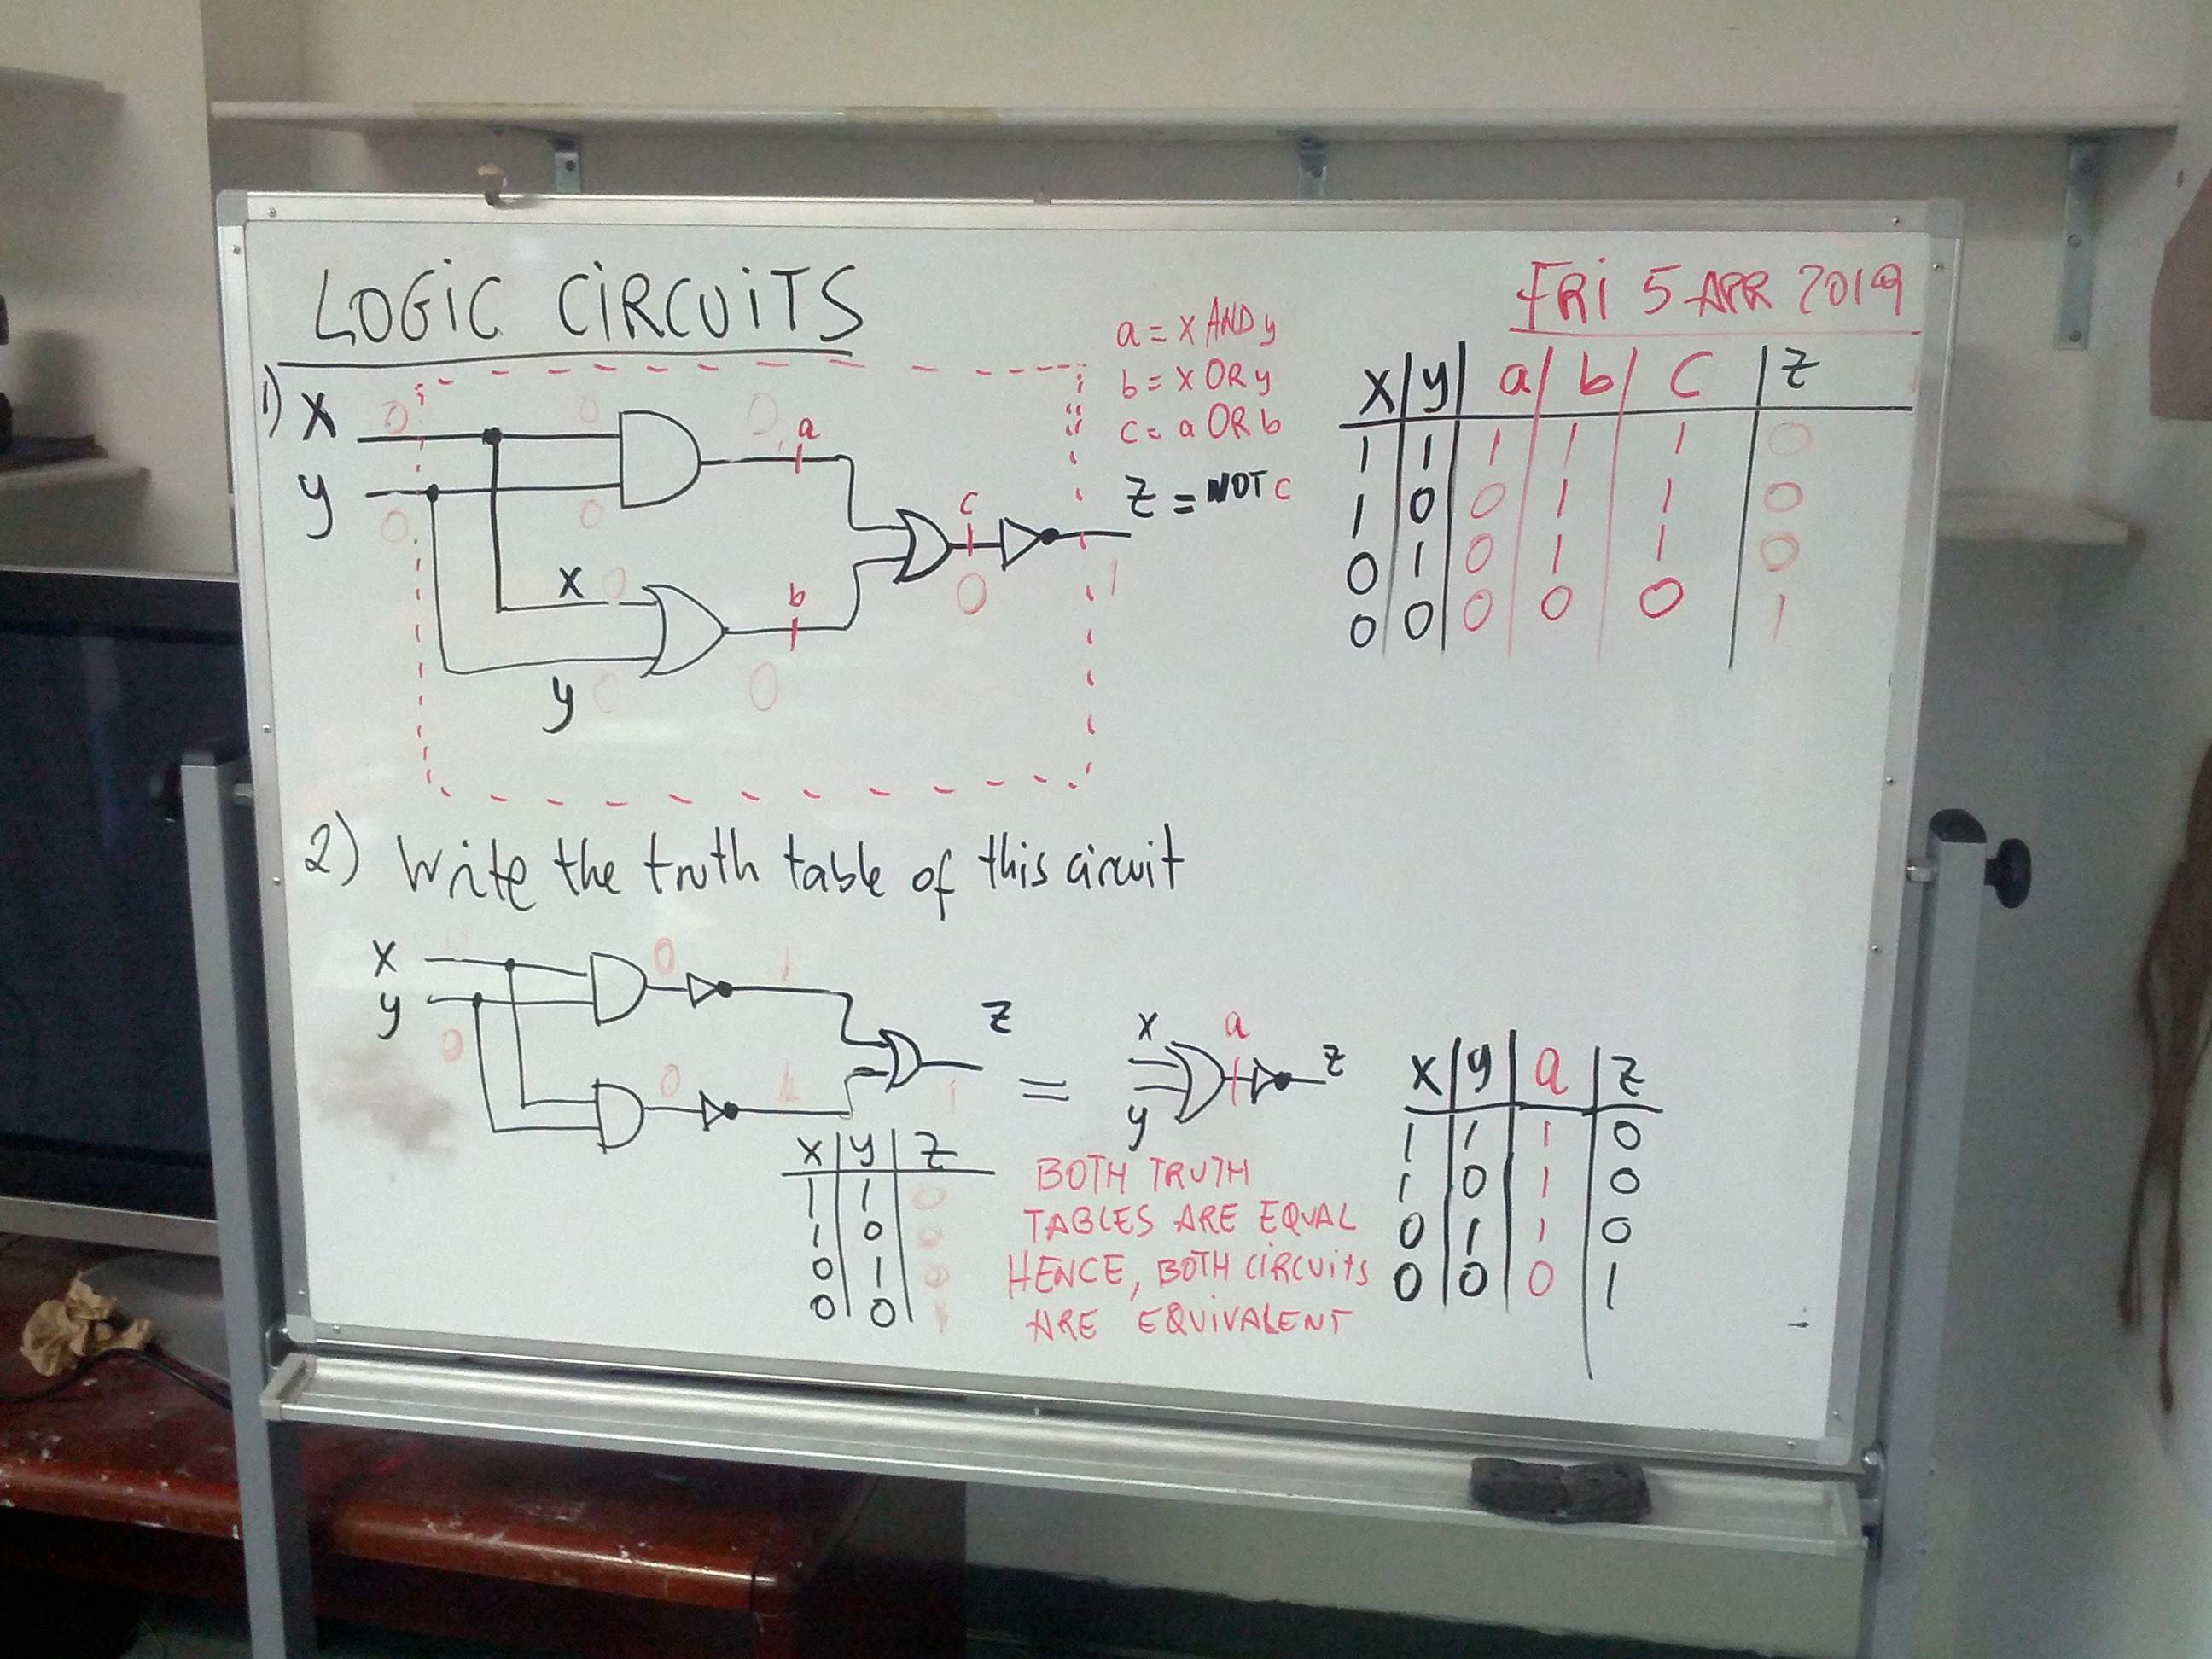 LOGiC CiRCUiTS
FRi 5 APR 2019
a = x AND y
b = x OR y
c = a OR b
z = NOT c
1) x
y
0 0 0 a
0 0
c
x 0 b
y 0 0
0 1
x y a b c z
1 1 1 1 1 0
1 0 0 1 1 0
0 1 0 1 1 0
0 0 0 0 0 1
2) Write the truth table of this circuit
x 0 1
y
0 0 1 1
z
=
x a z
y
x y z
1 1 0
1 0 0
0 1 0
0 0 1
BOTH TRUTH
TABLES ARE EQUAL
HENCE, BOTH CiRCUits
ARE EQUiVALENT
x y a z
1 1 1 0
1 0 1 0
0 1 1 0
0 0 0 1